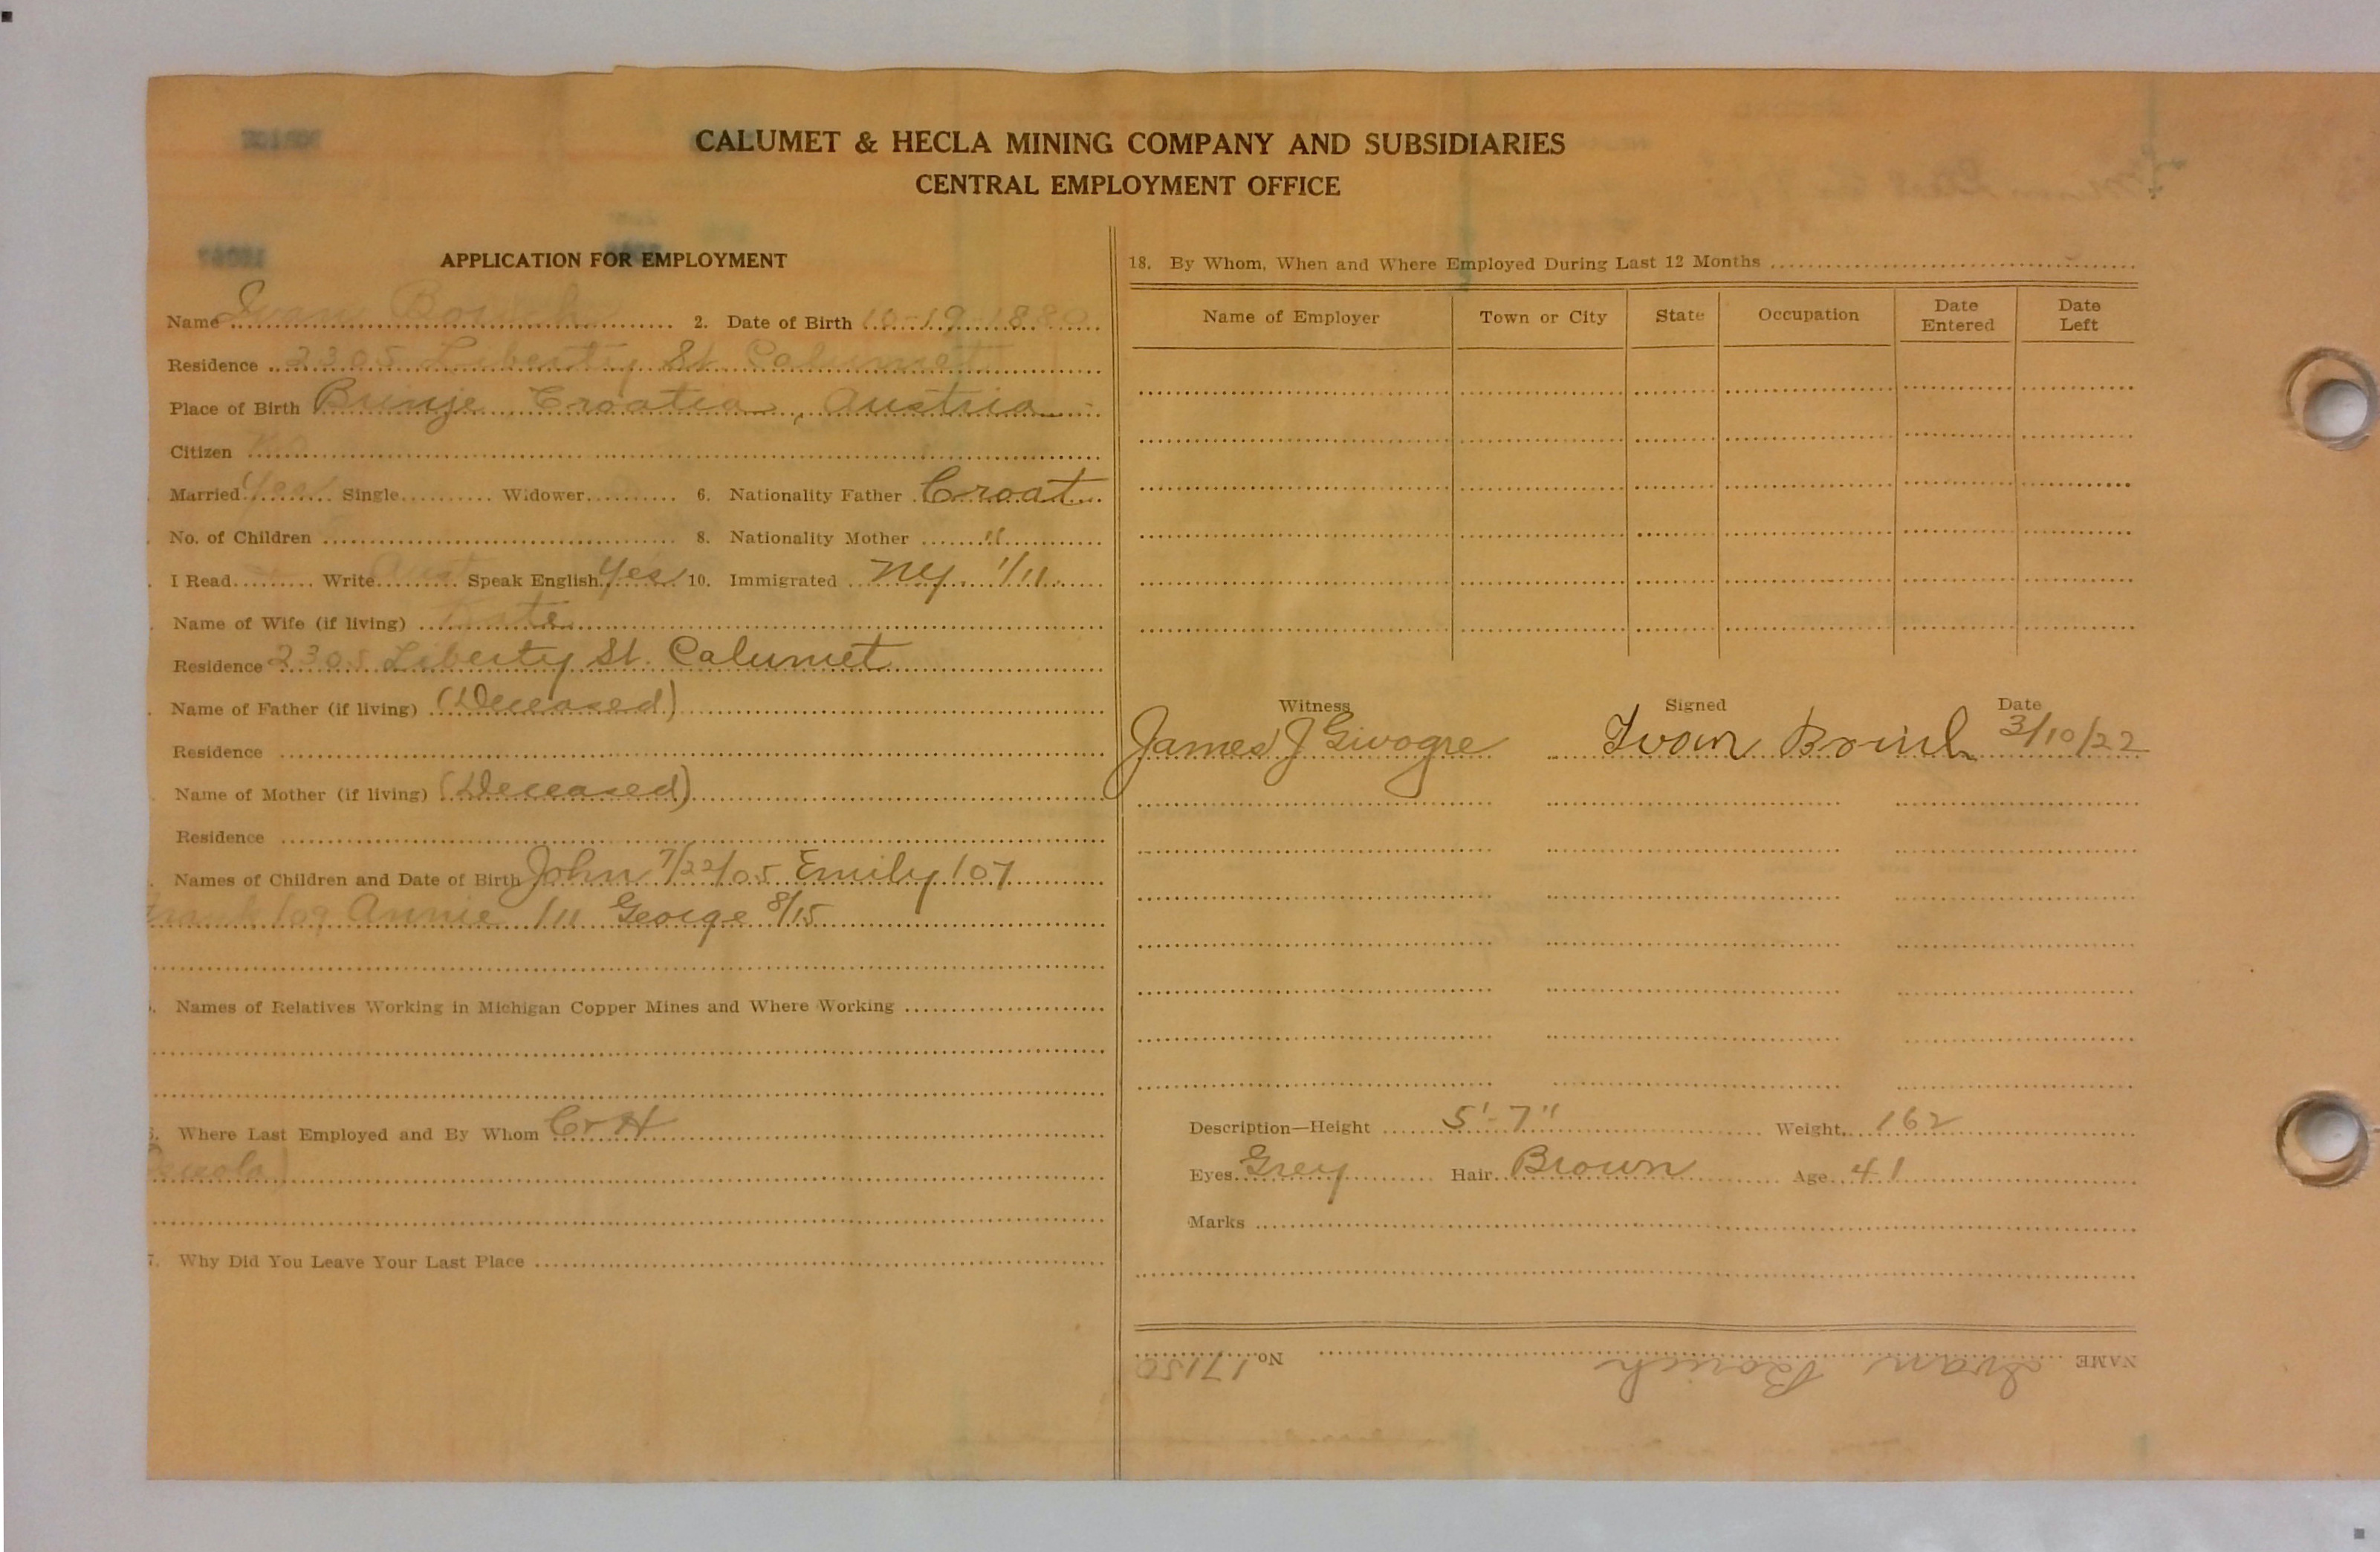 CALUMET & HECLA MINING COMPANY AND SUBSIDIARIES
CENTRAL EMPLOYMENT OFFICE
APPLICATION FOR EMPLOYMENT
Name Ivan 2. Date of Birth 10-19-1880
Residence 2305 Liberty St. Calumet
Place of Birth Brinje Croatia, Austria
Citizen No
Married Yes Single Widower 6. Nationality Father Croat
No. of Children 8. Nationality Mother "
I Read Write Aust Speak English Yes 10. Immigrated NY 1/11
Name of Wife (if living) Kate
Residence 2305 Liberty St. Calumet
Name of Father (if living) (Deceased)
Residence
Name of Mother (if living) (Deceased)
Residence
Names of Children and Date of Birth John 7/22/05 Emily /07
Frank /09 Annie /11 George 8/15
Names of Relatives Working in Michigan Copper Mines and Where Working
Where Last Employed and By Whom C & H
7. Why Did You Leave Your Last Place
18. By Whom, When and Where Employed During Last 12 Months
Name of Employer Town or City State Occupation Date Entered Date Left
Witness Signed Date
James J Givogre Ivan 3/10/22
Description—Height 5'-7" Weight 162
Eyes Grey Hair Brown Age 41
Marks
NAME Ivan No. 17150